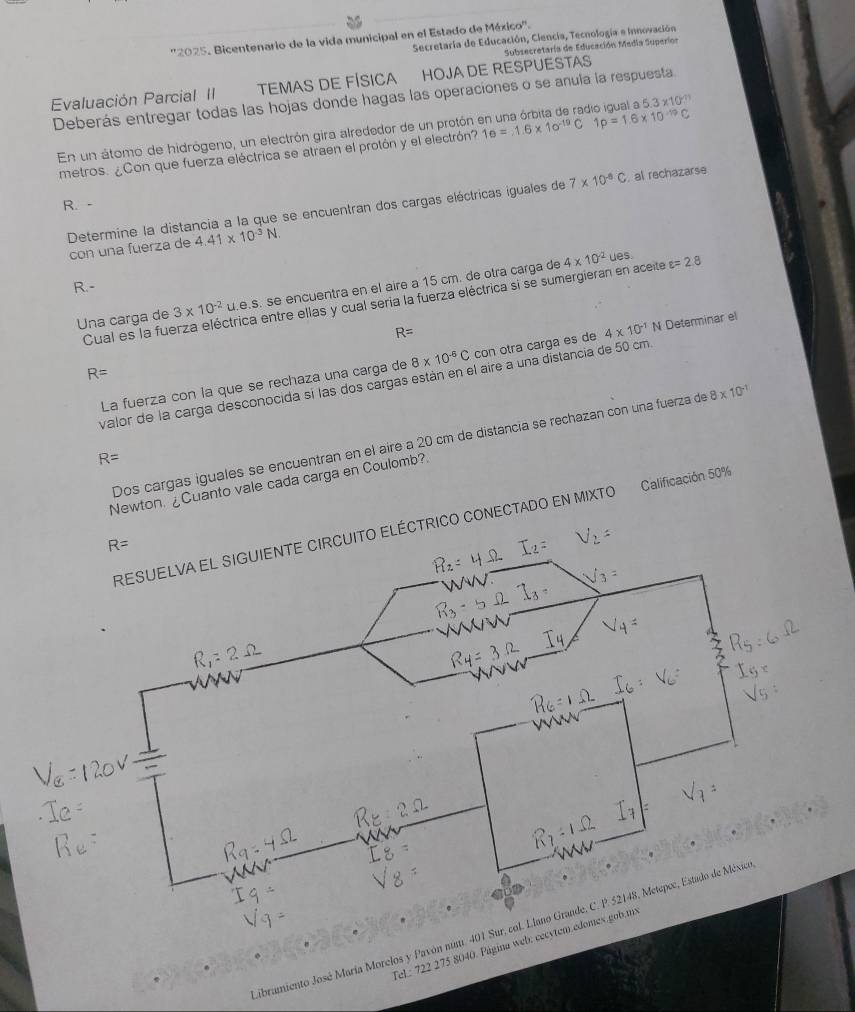 "2025. Bicentenario de la vida municipal en el Estado de México".
Secretaría de Educación, Ciencia, Tecnología e Innovación
Subsecretaría de Educación Media Superior
Evaluación Parcial II TEMAS DE FÍSICA HOJA DE RESPUESTAS
Deberás entregar todas las hojas donde hagas las operaciones o se anula la respuesta.
En un átomo de hidrógeno, un electrón gira alrededor de un protón en una órbita de radio igual a 5.3 x10⁻¹¹
metros. ¿Con que fuerza eléctrica se atraen el protón y el electrón? 1e = .1.6 x 1o⁻¹⁹ C 1p = 1.6 x 10⁻¹⁹ C
R. -
Determine la distancia a la que se encuentran dos cargas eléctricas iguales de 7 x 10⁻⁸ C. al rechazarse
con una fuerza de 4.41 x 10⁻³ N.
R.-
Una carga de 3 x 10⁻² u.e.s. se encuentra en el aire a 15 cm. de otra carga de 4 x 10⁻² ues.
Cual es la fuerza eléctrica entre ellas y cual seria la fuerza eléctrica si se sumergieran en aceite ε= 2.8
R= R=
La fuerza con la que se rechaza una carga de 8 x 10⁻⁶ C con otra carga es de 4 x 10⁻¹ N Determinar el
valor de la carga desconocida si las dos cargas están en el aire a una distancia de 50 cm.
R=
Dos cargas iguales se encuentran en el aire a 20 cm de distancia se rechazan con una fuerza de 8 x 10⁻¹
Newton. ¿Cuanto vale cada carga en Coulomb?.
R=
RESUELVA EL SIGUIENTE CIRCUITO ELÉCTRICO CONECTADO EN MIXTO Calificación 50%
R₂= 4 Ω I₂= V₂=
R₃= 5 Ω I₃= V₃=
R₁= 2 Ω R₄= 3 Ω I₄= V₄=
R₅= 6 Ω
I₅=
V₅=
R₆= 1 Ω I₆= V₆=
Ve=120V
Ie=
Re=
R₇= 1 Ω I₇= V₇=
R₈= 2 Ω
I₈=
V₈=
R₉= 4 Ω
I₉=
V₉=
Libramiento José María Morelos y Pavón núm. 401 Sur, col. Llano Grande, C. P. 52148, Metepec, Estado de México,
Tel.: 722 275 8040. Página web: cecytem.edomex.gob.mx